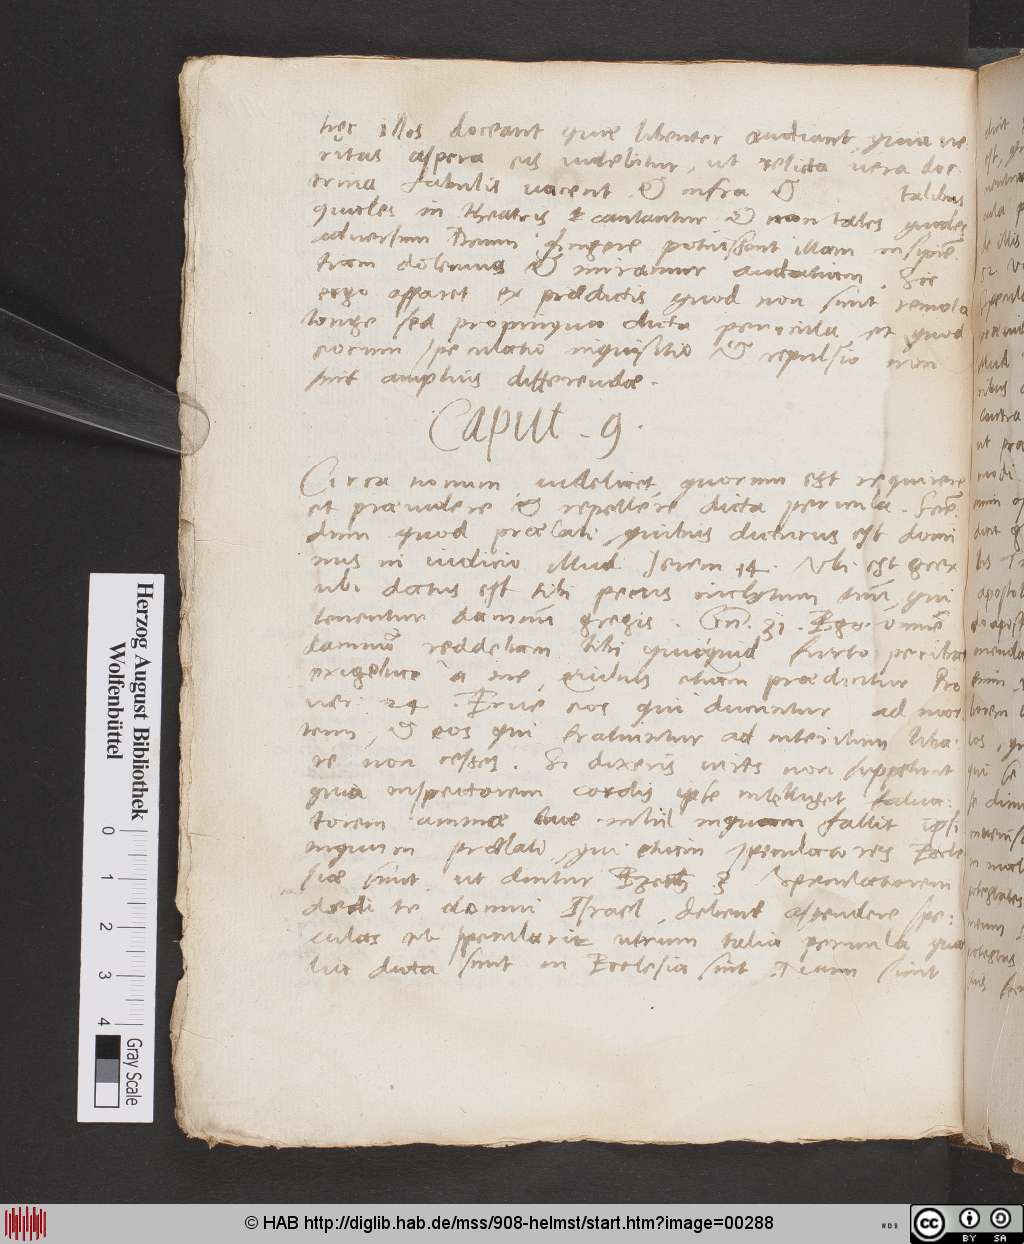 hęc illos doceant quae libenter audiant, quia ve-
ritas aspera eis videbitur, ut relicta vera doc-
trina fabulis vacent & infra & talibus
quales in theatris cantantur & non tales quales
adversum Deum fingere potuissent illam insipiē-
tiam dolemus & miramur audatiam. Sic
ergo apparet ex praedictis quod non sint remota
longe sed propinqua dicta pericula et quod
eorum speculatio inquisitio & repulsio non
sint amplius differendae.
Caput. 9.
Circa nonum, videlicet, quorum est requirere
et praevidere & repellere dicta pericula. Sciē-
dum quod praelati quibus dicturus est domi
nus in iudicio illud Jerem 14. Ubi est grex
ubi datus est tibi pecus inclytum tuū, qui
tenentur damnū gregis. Gn. 31. Ego omnē
damnū reddebam tibi quicquid furto peribat
exigebat à me, Quibus etiam praedicitur Pro
ver. 24. Erue eos qui ducuntur ad mor
tem, & eos qui trahuntur ad interitum libera-
re non cesses. Si dixeris vires non suppetunt
quia inspectorem cordis ipse intelliget salva-
torem animae tuae nihil inquam fallit ipsi
inquam praelati qui etiam speculatores Eccle
siae sunt, ut dicitur Ezech 3 Speculatorem
dedi te domui Israel, debent ascendere spe-
culas et speculari utrum talia pericula qua
lia dicta sunt in Ecclesia sint. Nam sicut
Herzog August Bibliothek
Wolfenbüttel
0 1 2 3 4
Gray Scale
© HAB http://diglib.hab.de/mss/908-helmst/start.htm?image=00288
WDB
cc BY SA